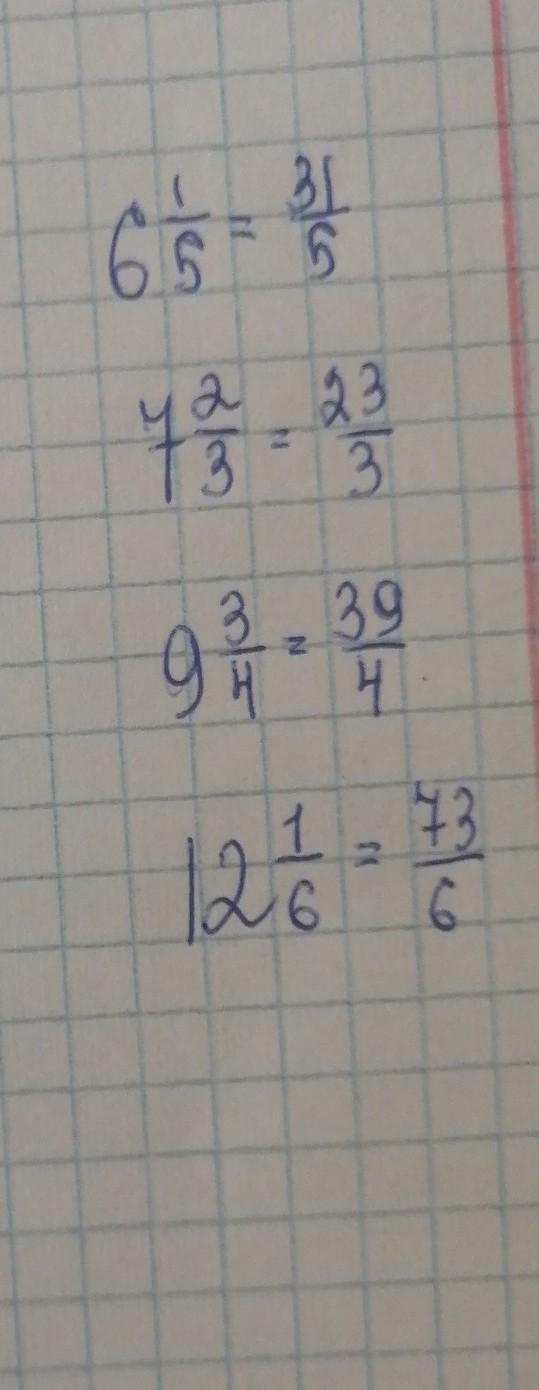 6 1/5 = 31/5
7 2/3 = 23/3
9 3/4 = 39/4
12 1/6 = 73/6